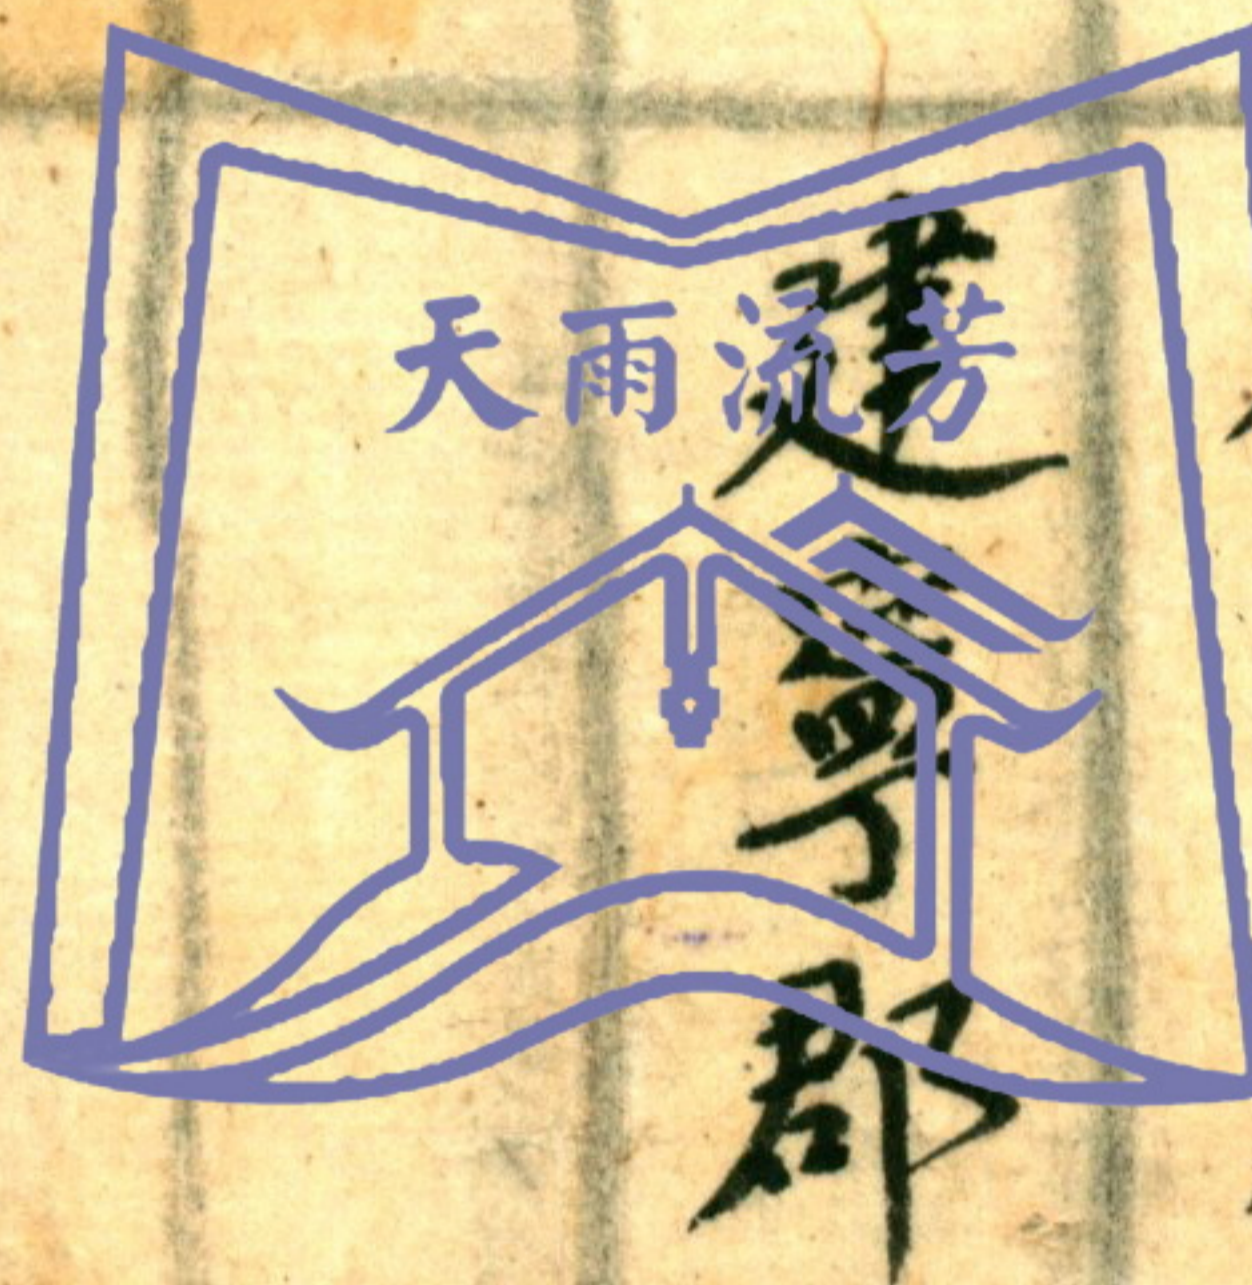 天雨流芳
建寧郡